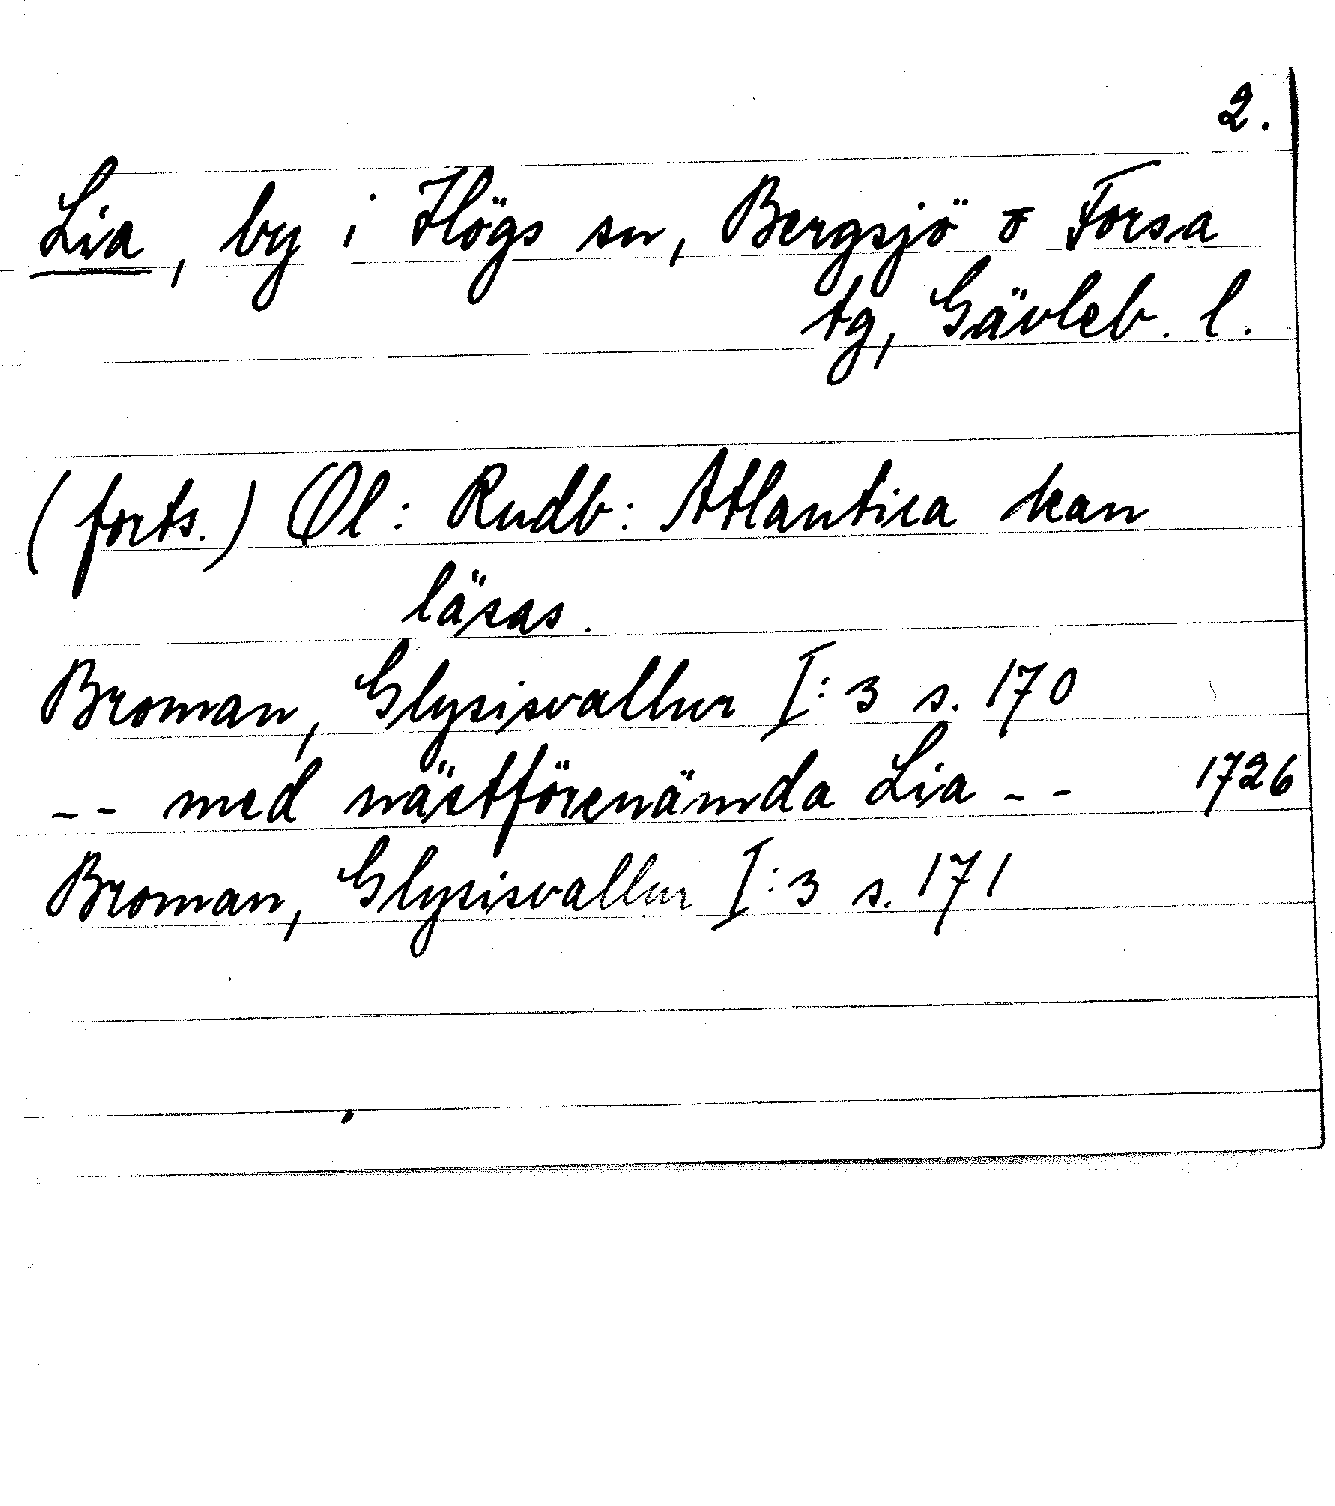 2.
Lia, by i Högs sn, Bergsjö o Forsa
tg, Gävleb. l.
(forts.) Ol: Rudb: Atlantica kan
läsas.
Broman, Glysisvallur I:3 s. 170
-- med nästförenämda Lia -- 1726
Broman, Glysisvallur I:3 s. 171